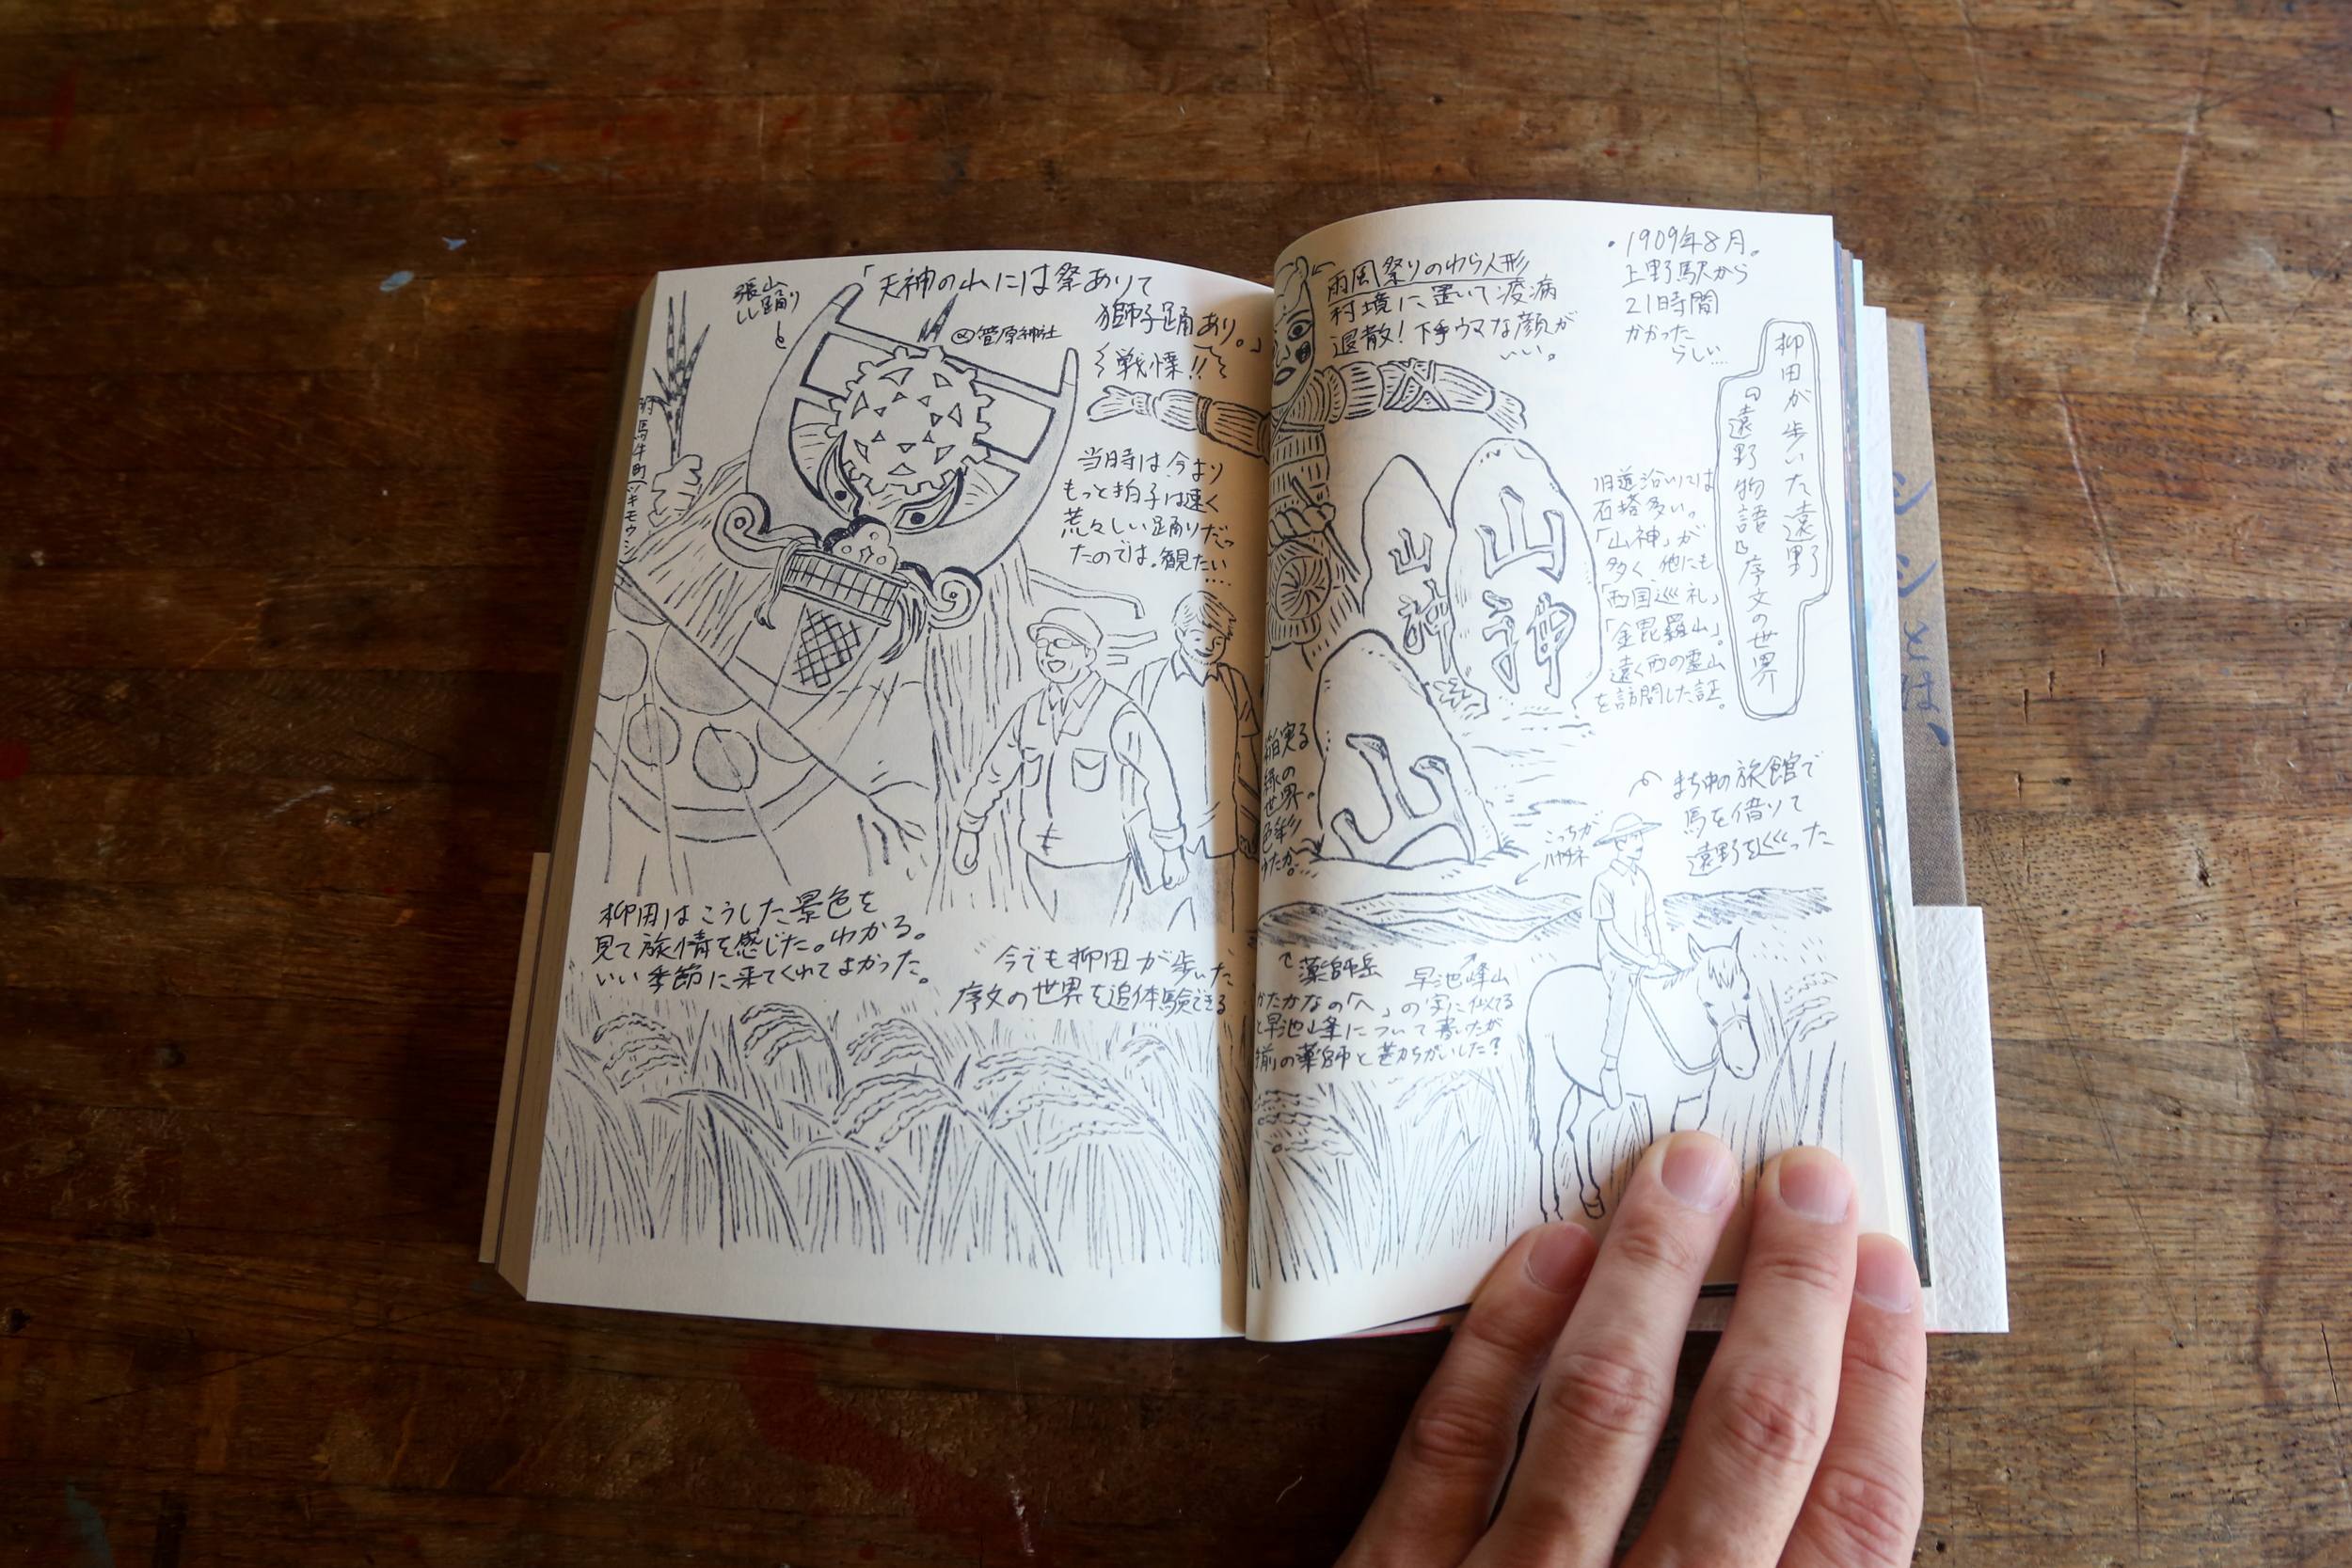 ・1909年8月。
上野駅から
21日時間
かかった
らしい…
柳田が歩いた遠野
『遠野物語』序文の世界
雨風祭りのわら人形
村境に置いて疫病
退散！下手ウマな顔が
いい。
旧道沿いには
石塔多い。
「山神」が
多く、他にも
「西国巡礼」
「金毘羅山」。
遠く西の霊山
を訪問した証。
山神
山神
山
まち中の旅館で
馬を借りて
遠野を巡った
こっちが
ハヤチネ
稲実る
緑の
世界。
色彩
ゆたか。
薬師岳
早池峰山
かたかなの「へ」の字に似てる
と早池峰について書いたが
前の薬師と
「天神の山には祭ありて
獅子踊あり。」
@菅原神社
戦慄!!
張山
しし踊り
当時は今より
もっと拍子は速く
荒々しい踊りだっ
たのでは。観たい
….
柳田はこうした景色を
見て旅情を感じた。わかる。
いい季節に来てくれてよかった。
今でも柳田が歩いた
序文の世界を追体験できる
シシとは、